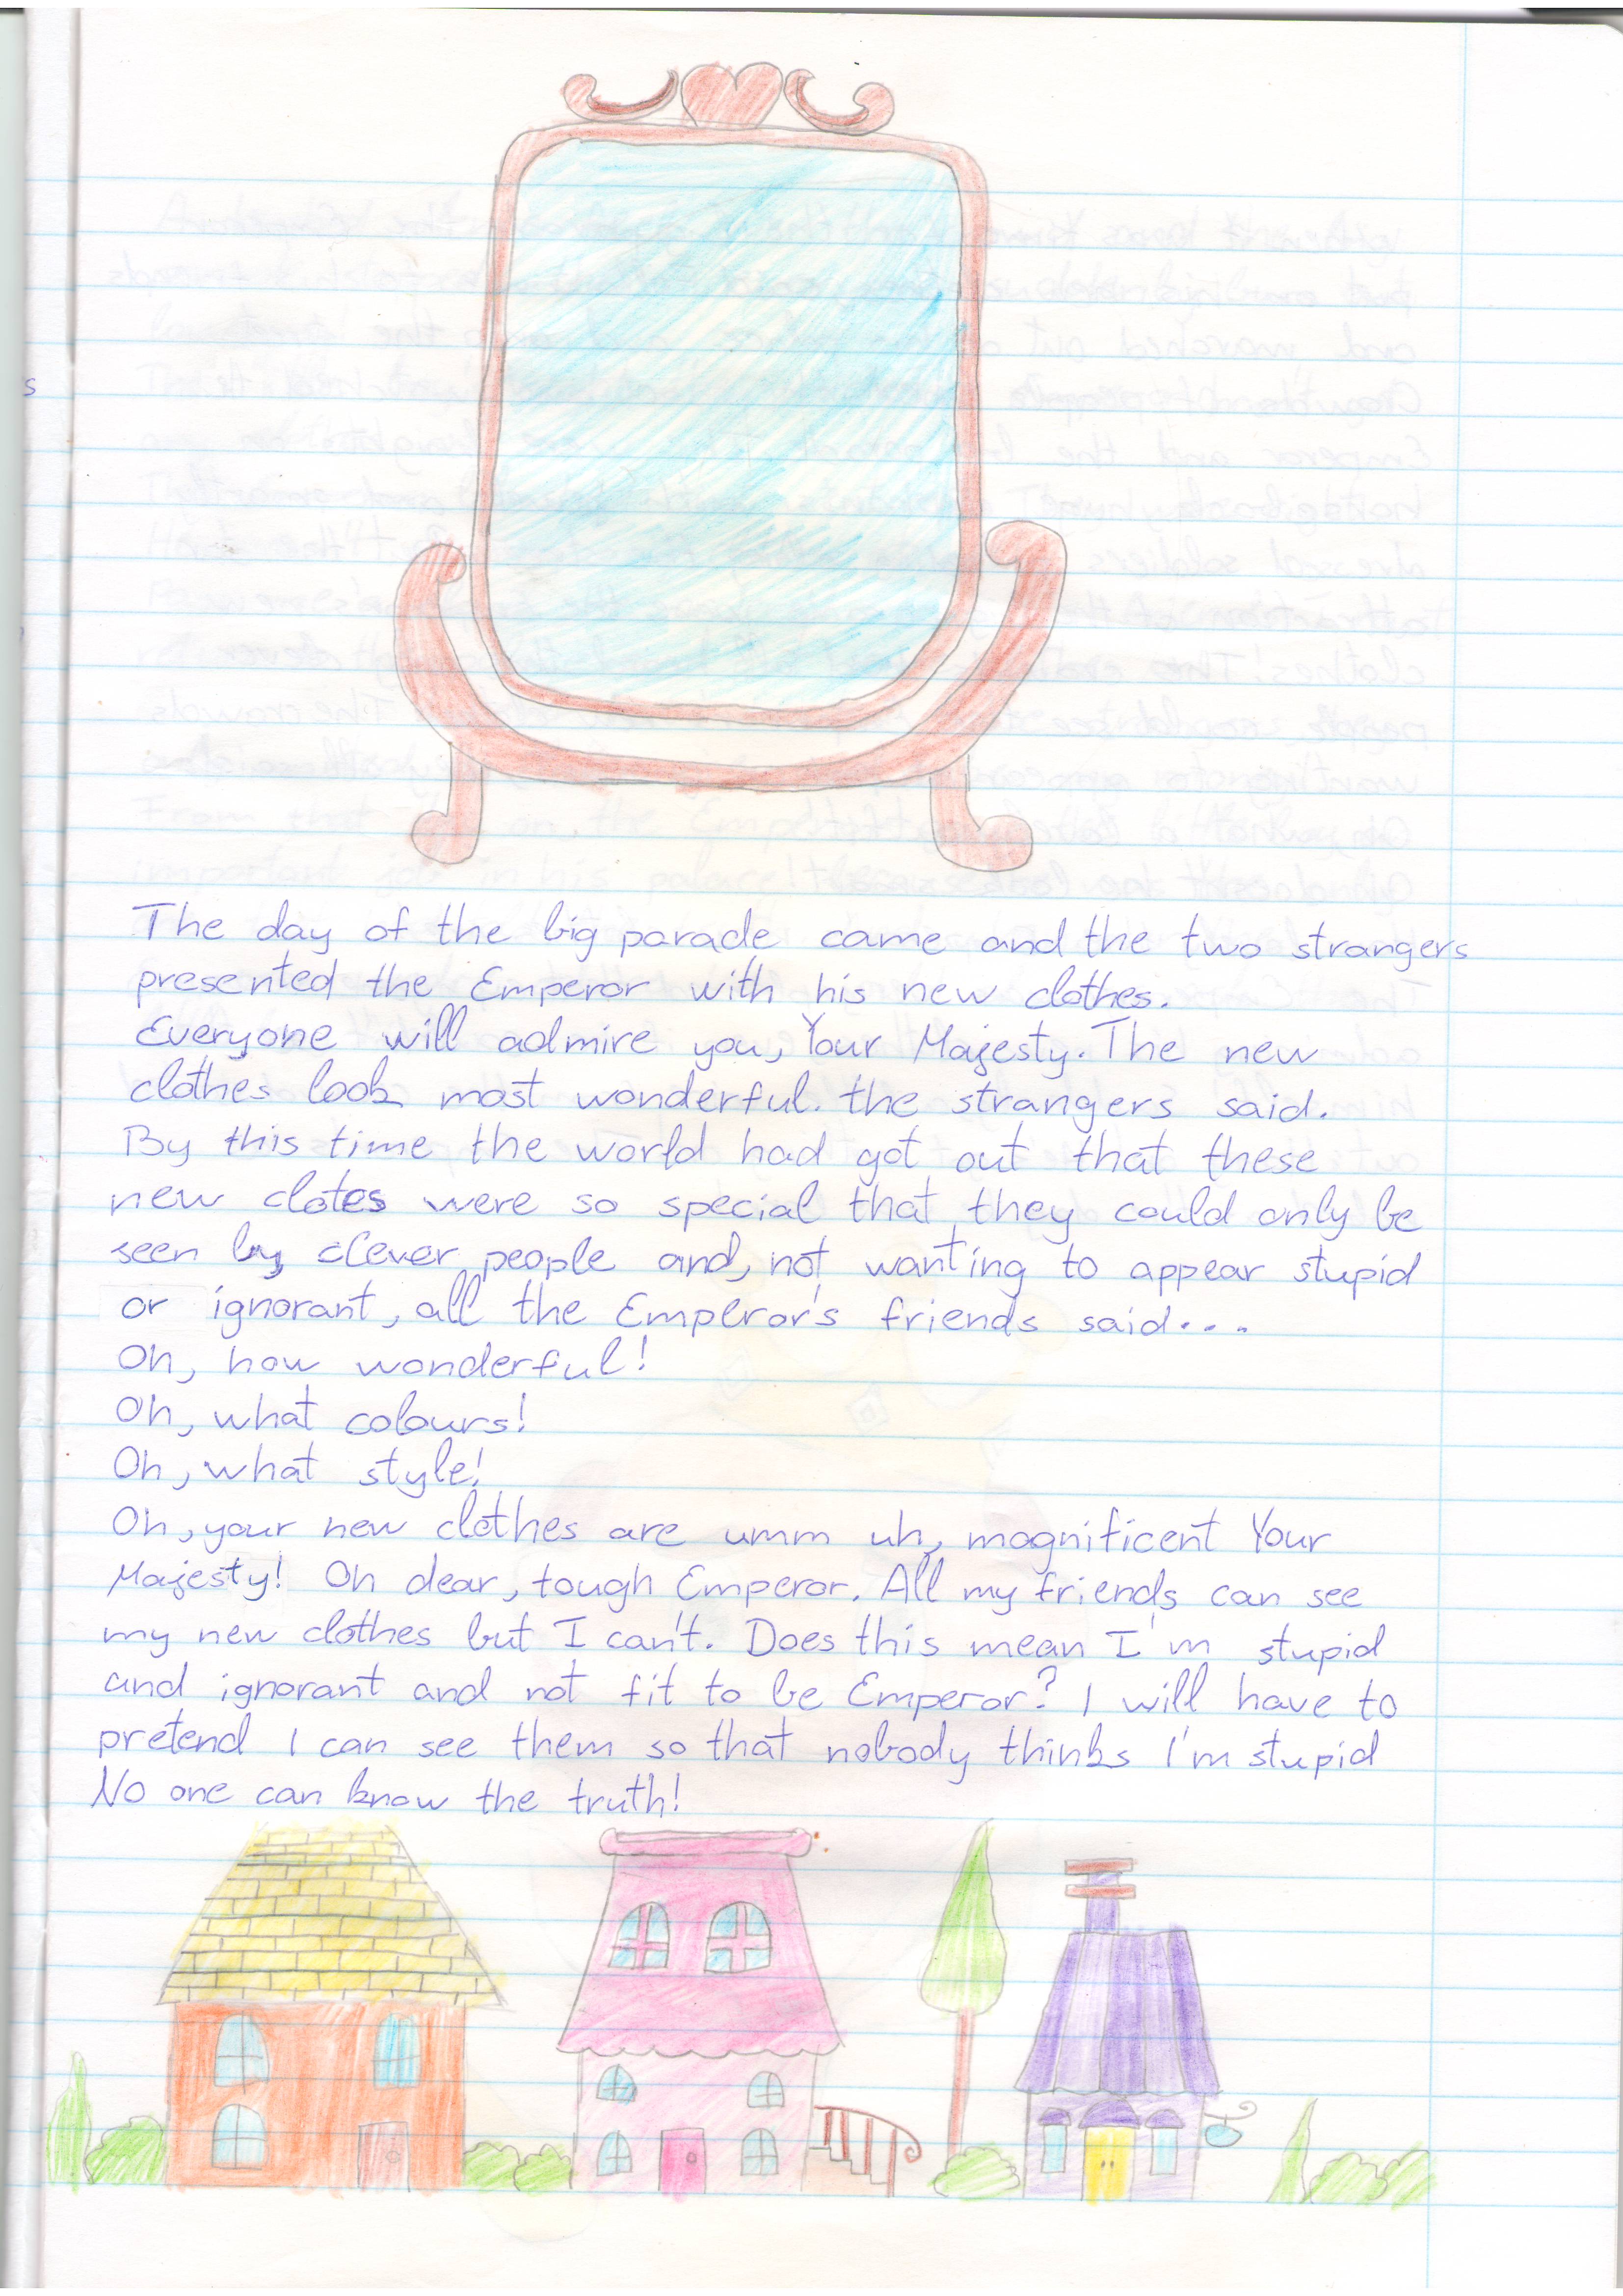 The day of the big parade came and the two strangers
presented the Emperor with his new clothes.
Everyone will admire you, Your Majesty. The new
clothes look most wonderful. the strangers said.
By this time the world had got out that these
new clotes were so special that they could only be
seen by clever people and, not wanting to appear stupid
or ignorant, all the Emperor's friends said...
Oh, how wonderful!
Oh, what colours!
Oh, what style!
Oh, your new clothes are umm uh, magnificent Your
Majesty! Oh dear, tough Emperor. All my friends can see
my new clothes but I can't. Does this mean I'm stupid
and ignorant and not fit to be Emperor? I will have to
pretend I can see them so that nobody thinks I'm stupid
No one can know the truth!